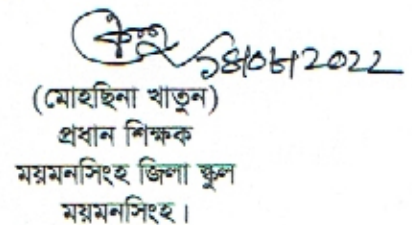 ১৪/০৮/2022
(মোহছিনা খাতুন)
প্রধান শিক্ষক
ময়মনসিংহ জিলা স্কুল
ময়মনসিংহ।